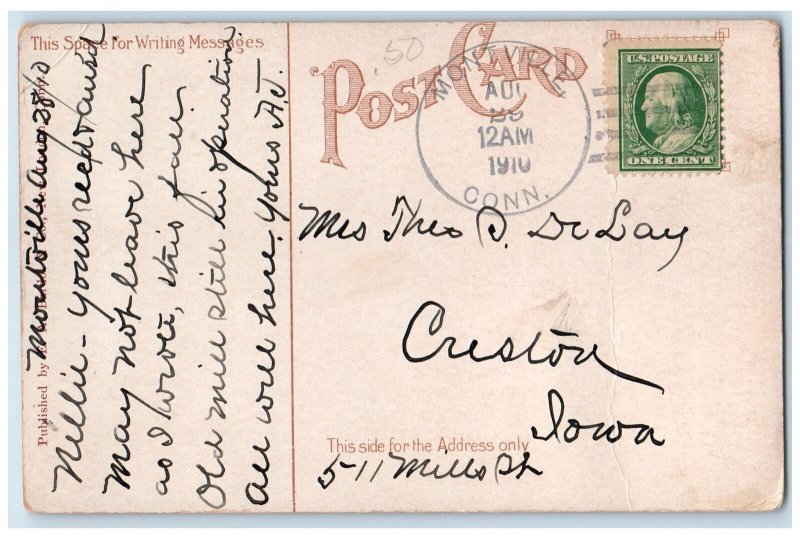 This Space for Writing Messages
POST CARD
.50
MONTVILLE,
AUG
12AM
1910
CONN.
U.S. POSTAGE
ONE CENT
Montville Aug 28/10
Nellie - yours recd & aunt
may not leave here
as I wrote, this fall.
Old mill still in operation.
All well here. Yours A.J.
Mrs Theo S. De Lay
Creston
Iowa
This side for the Address only
511 Mills St
Published by